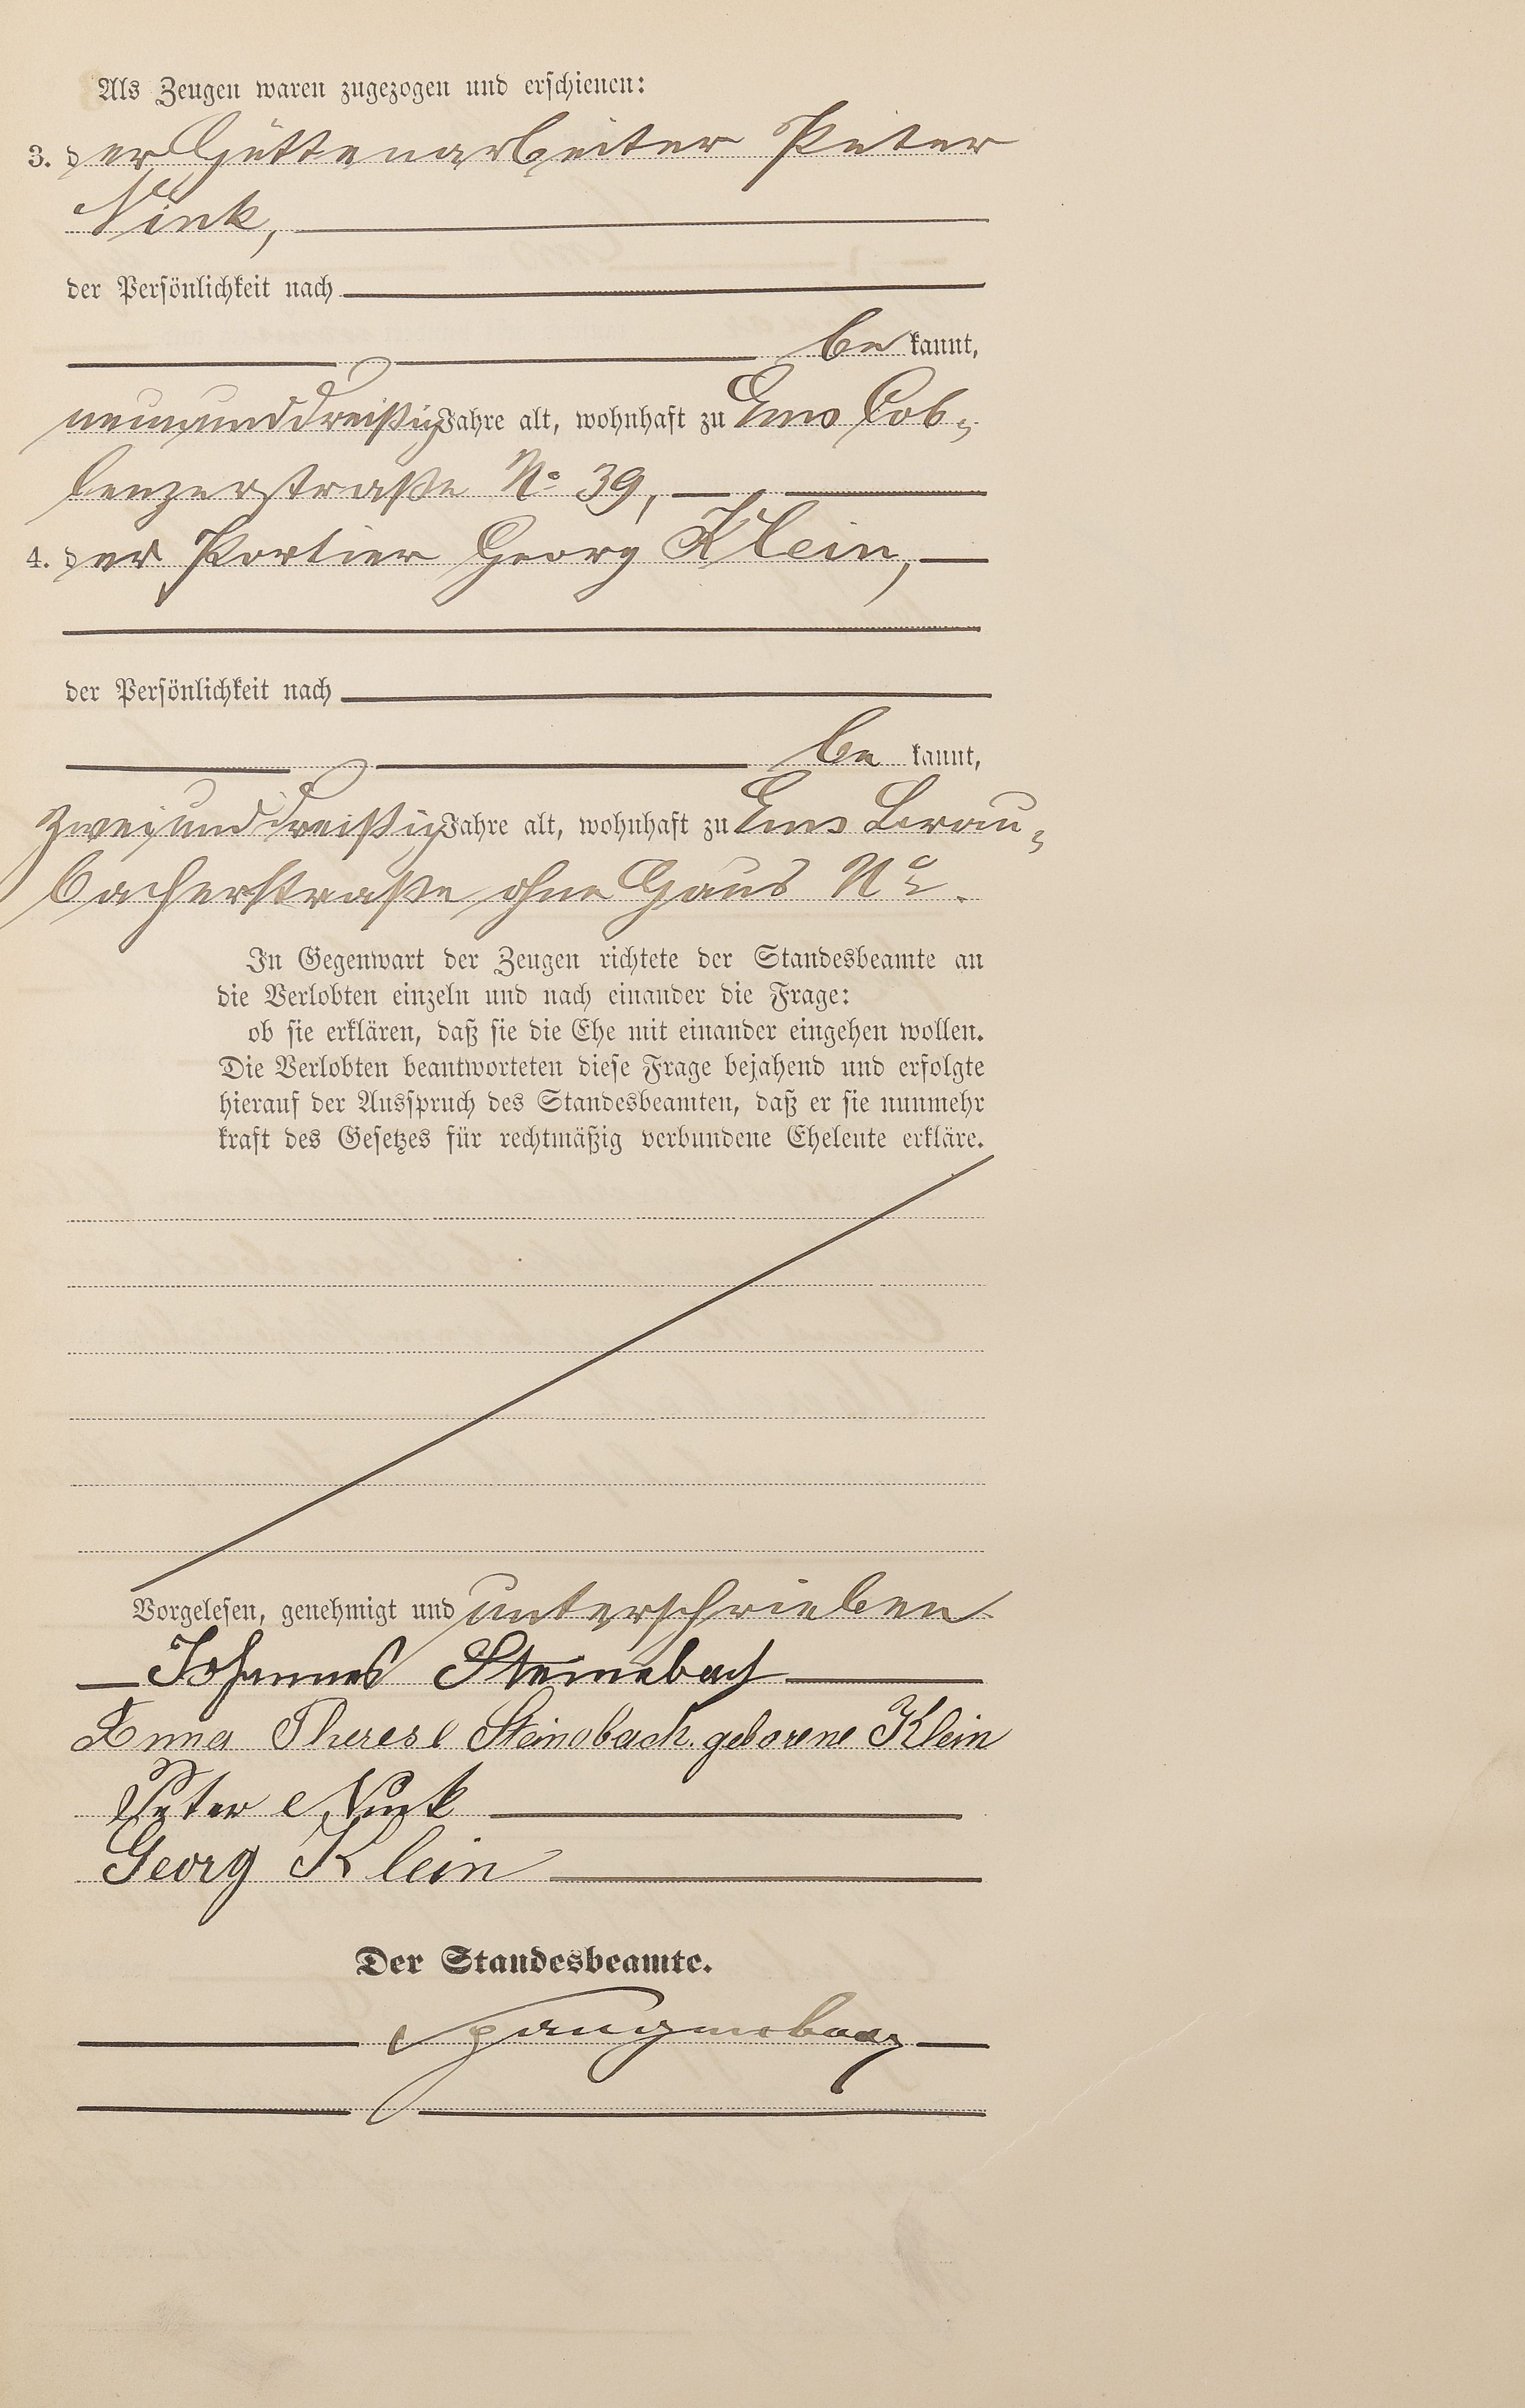 Als Zeugen waren zugezogen und erschienen:
3. der Hüttenarbeiter Peter
Nink,
der Persönlichkeit nach
be kannt,
neununddreißig Jahre alt, wohnhaft zu Ems Cob-
lenzerstraße No 39,
4. der Portier Georg Klein,
der Persönlichkeit nach
be kannt,
zweiunddreißig Jahre alt, wohnhaft zu Ems Brau-
bacherstraße ohne Haus No.
In Gegenwart der Zeugen richtete der Standesbeamte an
die Verlobten einzeln und nach einander die Frage:
ob sie erklären, daß sie die Ehe mit einander eingehen wollen.
Die Verlobten beantworteten diese Frage bejahend und erfolgte
hierauf der Ausspruch des Standesbeamten, daß er sie nunmehr
kraft des Gesetzes für rechtmäßig verbundene Eheleute erkläre.
Vorgelesen, genehmigt und unterschrieben
Johannes Steinebach
Anna Therese Steinebach geborene Klein
Peter Nink
Georg Klein
Der Standesbeamte.